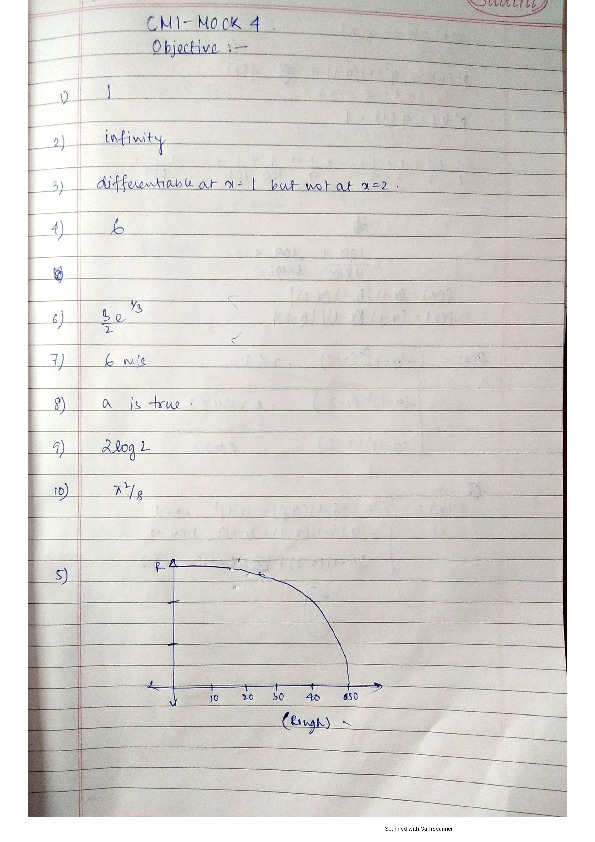 Sudhi
CMI-MOCK 4
Objective :-
1) 1
2) infinity
3) differentiable at x=1 but not at x=2.
4) 6
6) 3/2 e^1/3
7) 6 m/s
8) a is true.
9) 2log2
10) π²/8
5) R
10 20 30 40 50
(Rough)
Scanned with CamScanner